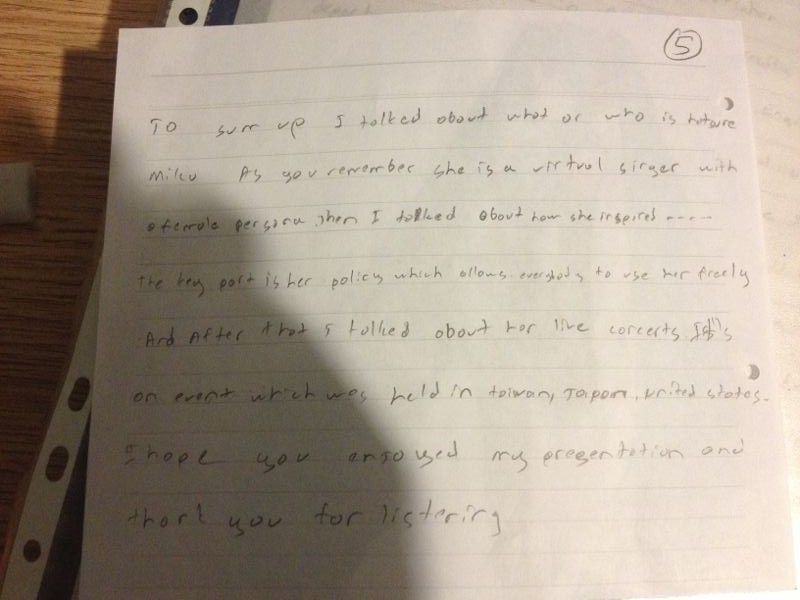 5
To sum up I talked about what or who is hatsune
miku As you remember she is a virtual singer with
a female persona, then I talked about how she inspired ----
The key part is her policy which allows everybody to use her freely
And After that I talked about her live concerts. It's
an event which was held in taiwan, Japan, united states.
I hope you enjoyed my presentation and
thank you for listening